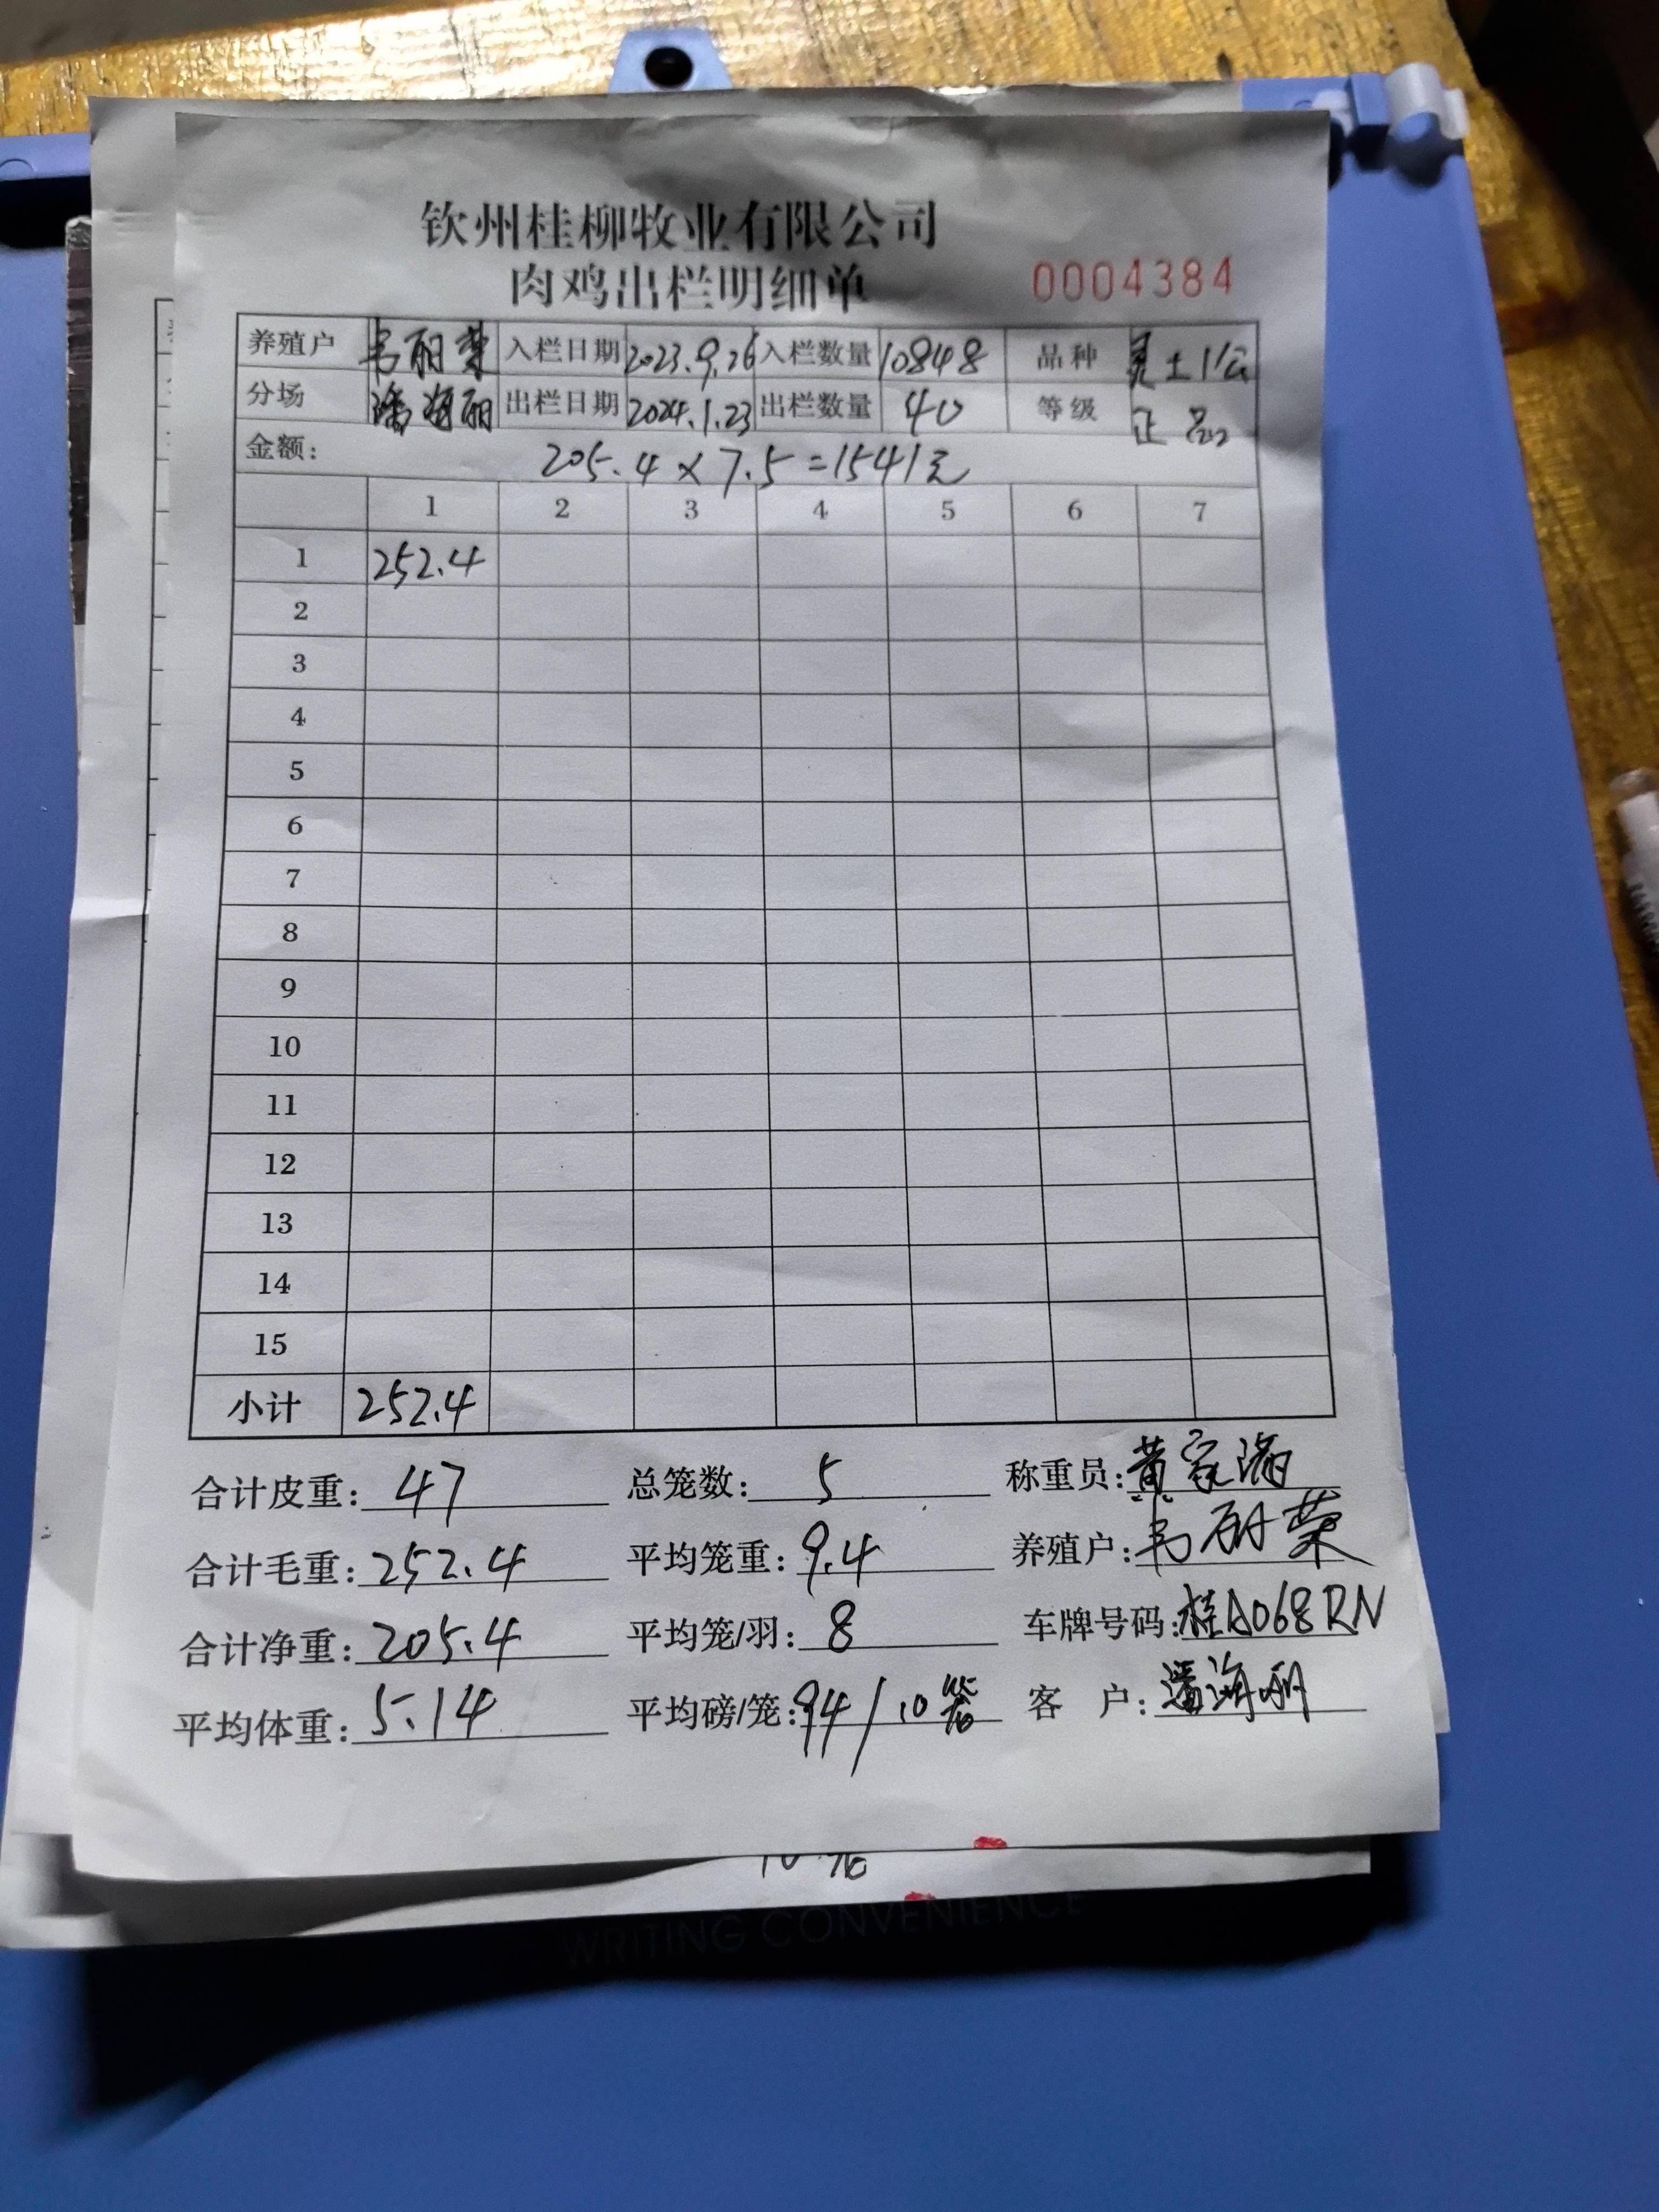 钦州桂柳牧业有限公司
肉鸡出栏明细单 0004384
养殖户 韦丽荣 入栏日期 2023.9.26 入栏数量 10848 品种 灵土1公
分场 潘海丽 出栏日期 2024.1.23 出栏数量 40 等级 正品
金额: 205.4×7.5=1541元
1 2 3 4 5 6 7
1 252.4
2
3
4
5
6
7
8
9
10
11
12
13
14
15
小计 252.4
合计皮重: 47 总笼数: 5 称重员: 黄家
合计毛重: 252.4 平均笼重: 9.4 养殖户: 韦丽荣
合计净重: 205.4 平均笼/羽: 8 车牌号码: 桂A068RN
平均体重: 5.14 平均磅/笼: 94/10笼 客 户: 潘海丽
WRITING CONVENIENCE